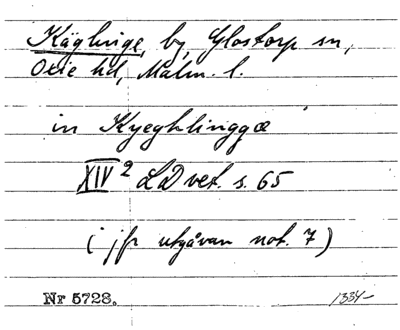 Käglinge, by, Glostorp sn,
Oxie hd, Malm. l.
in Kyeghlinggæ
XIV 2 LD vet. s. 65
( jfr utgåvan not. 7 )
Nr 5728.
1334-